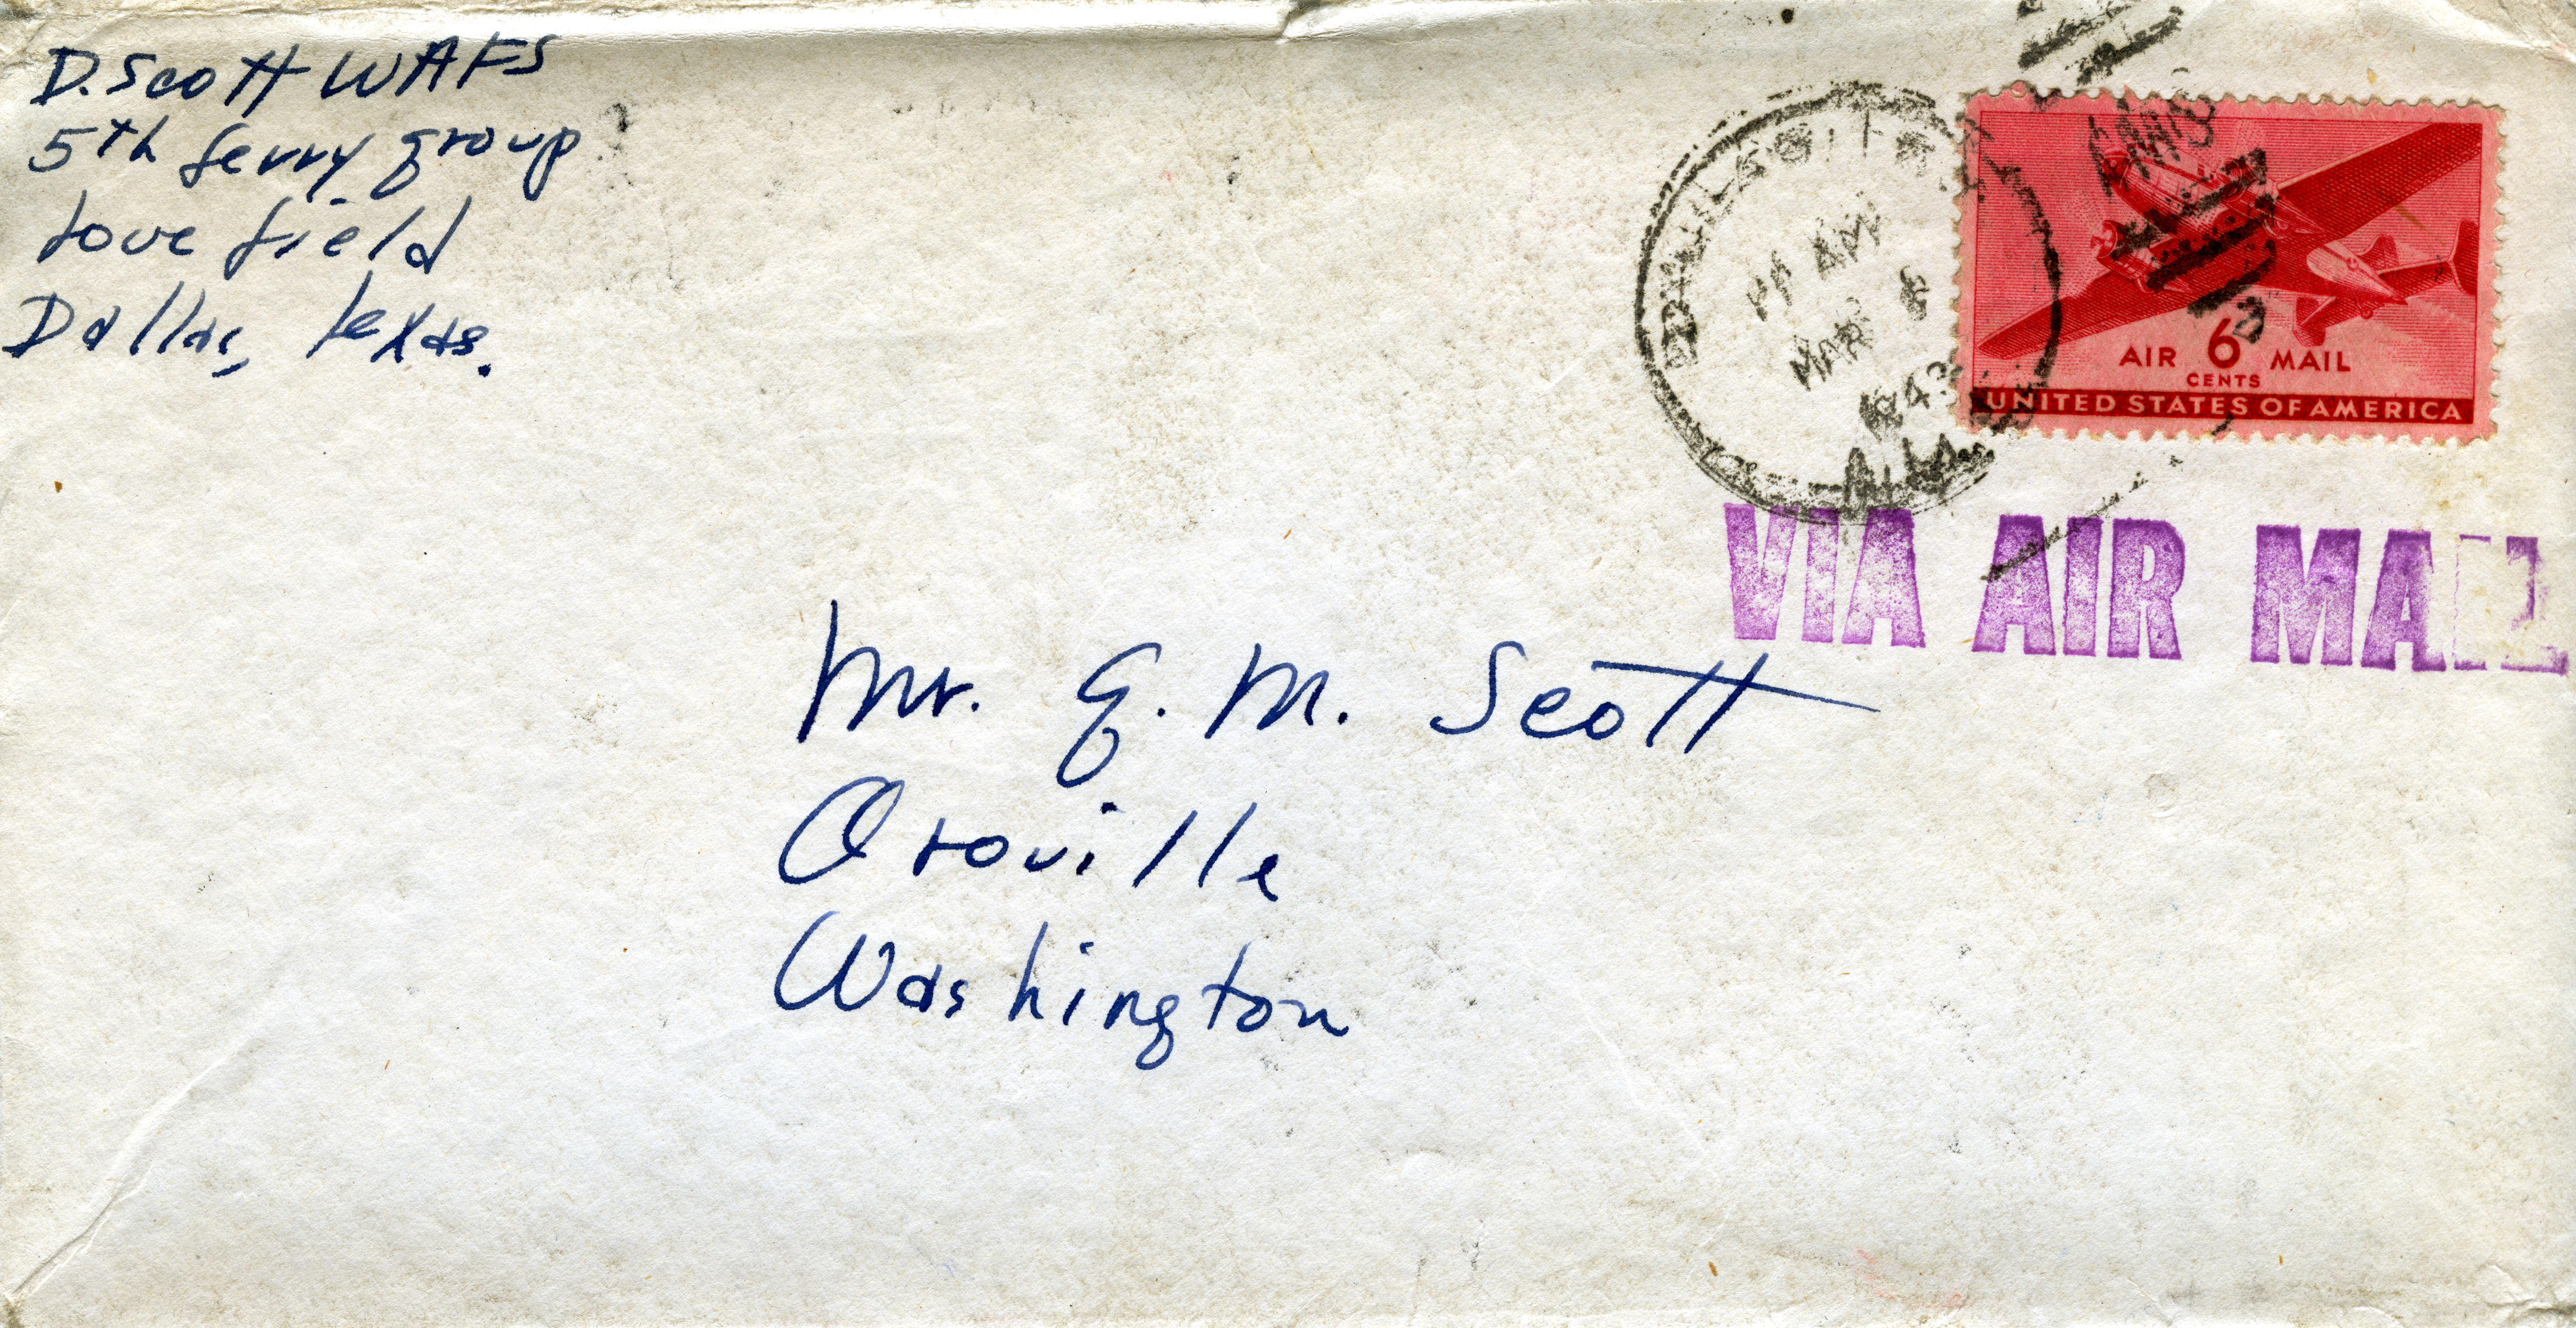 D. Scott WAFS
5th ferry group
Love field
Dallas, Texas.
MAR 6
1943
AIR 6 MAIL
CENTS
UNITED STATES OF AMERICA
VIA AIR MAIL
Mr. G. M. Scott
Oroville
Washington